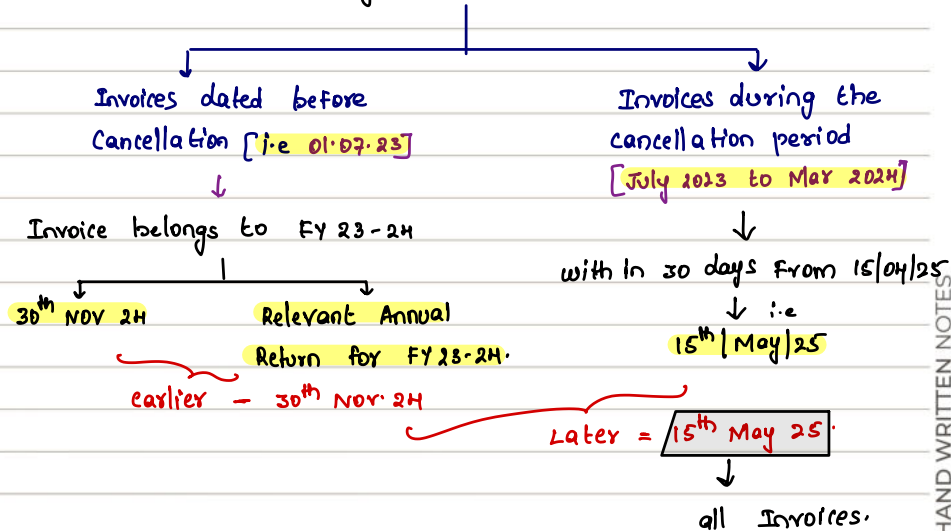 Invoices dated before
Cancellation [i.e 01.07.23]
Invoice belongs to FY 23-24
30th NOV 24
Relevant Annual
Return for FY 23-24.
earlier - 30th Nov. 24
Invoices during the
cancellation period
[July 2023 to Mar 2024]
with in 30 days From 15/04/25
i.e
15th/May/25
Later = 15th May 25.
all Invoices.
HAND WRITTEN NOTES